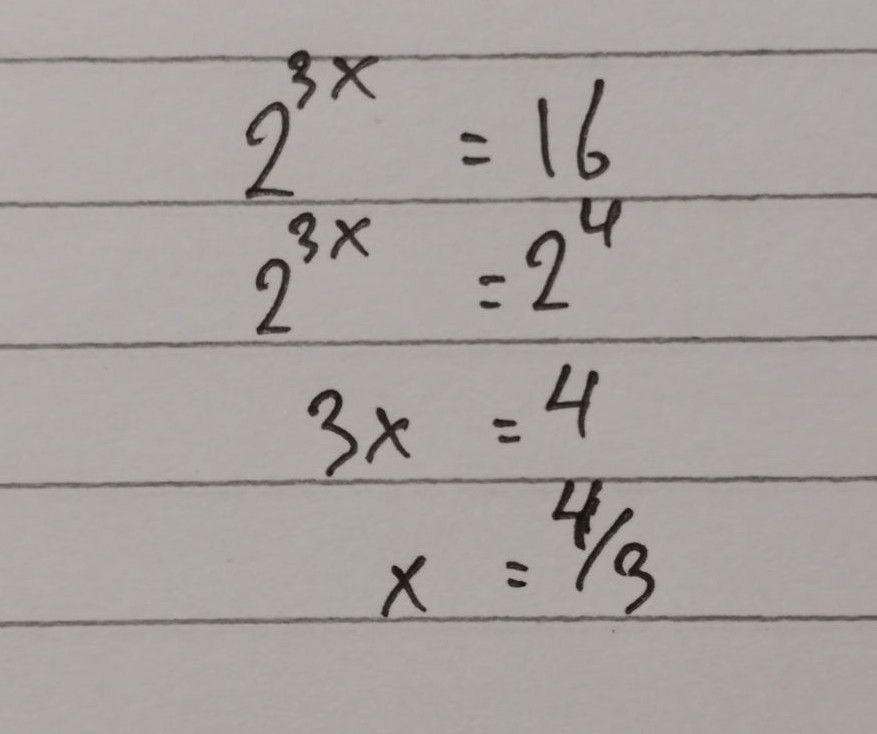 2^{3x} = 16
2^{3x} = 2^4
3x = 4
x = 4/3